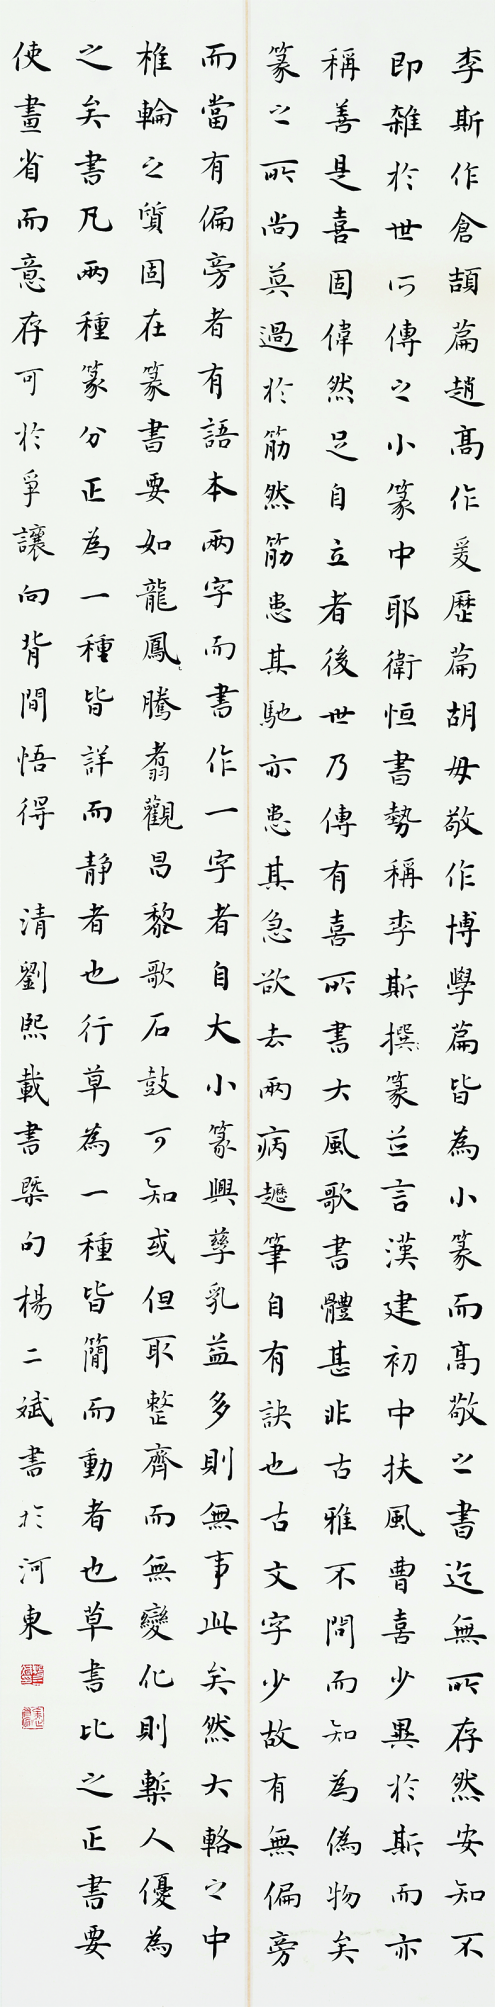 李斯作倉頡篇趙高作爰歷篇胡毋敬作博學篇皆為小篆而高敬之書迄無所存然安知不
即雜於世所傳之小篆中耶衛恒書勢稱李斯撰篆並言漢建初中扶風曹喜少異於斯而亦
稱善是喜固偉然足自立者後世乃傳有喜所書大風歌書體甚非古雅不問而知為偽物矣
篆之所尚莫過於筋然筋患其馳亦患其急欲去兩病趲筆自有訣也古文字少故有無偏旁
而當有偏旁者有語本兩字而書作一字者自大小篆興孳乳益多則無事此矣然大輅之中
椎輪之質固在篆書要如龍鳳騰翥觀昌黎歌石鼓可知或但取整齊而無變化則槧人優為
之矣書凡兩種篆分正為一種皆詳而靜者也行草為一種皆簡而動者也草書比之正書要
使畫省而意存可於爭讓向背間悟得 清劉熙載書槩句楊二斌書於河東